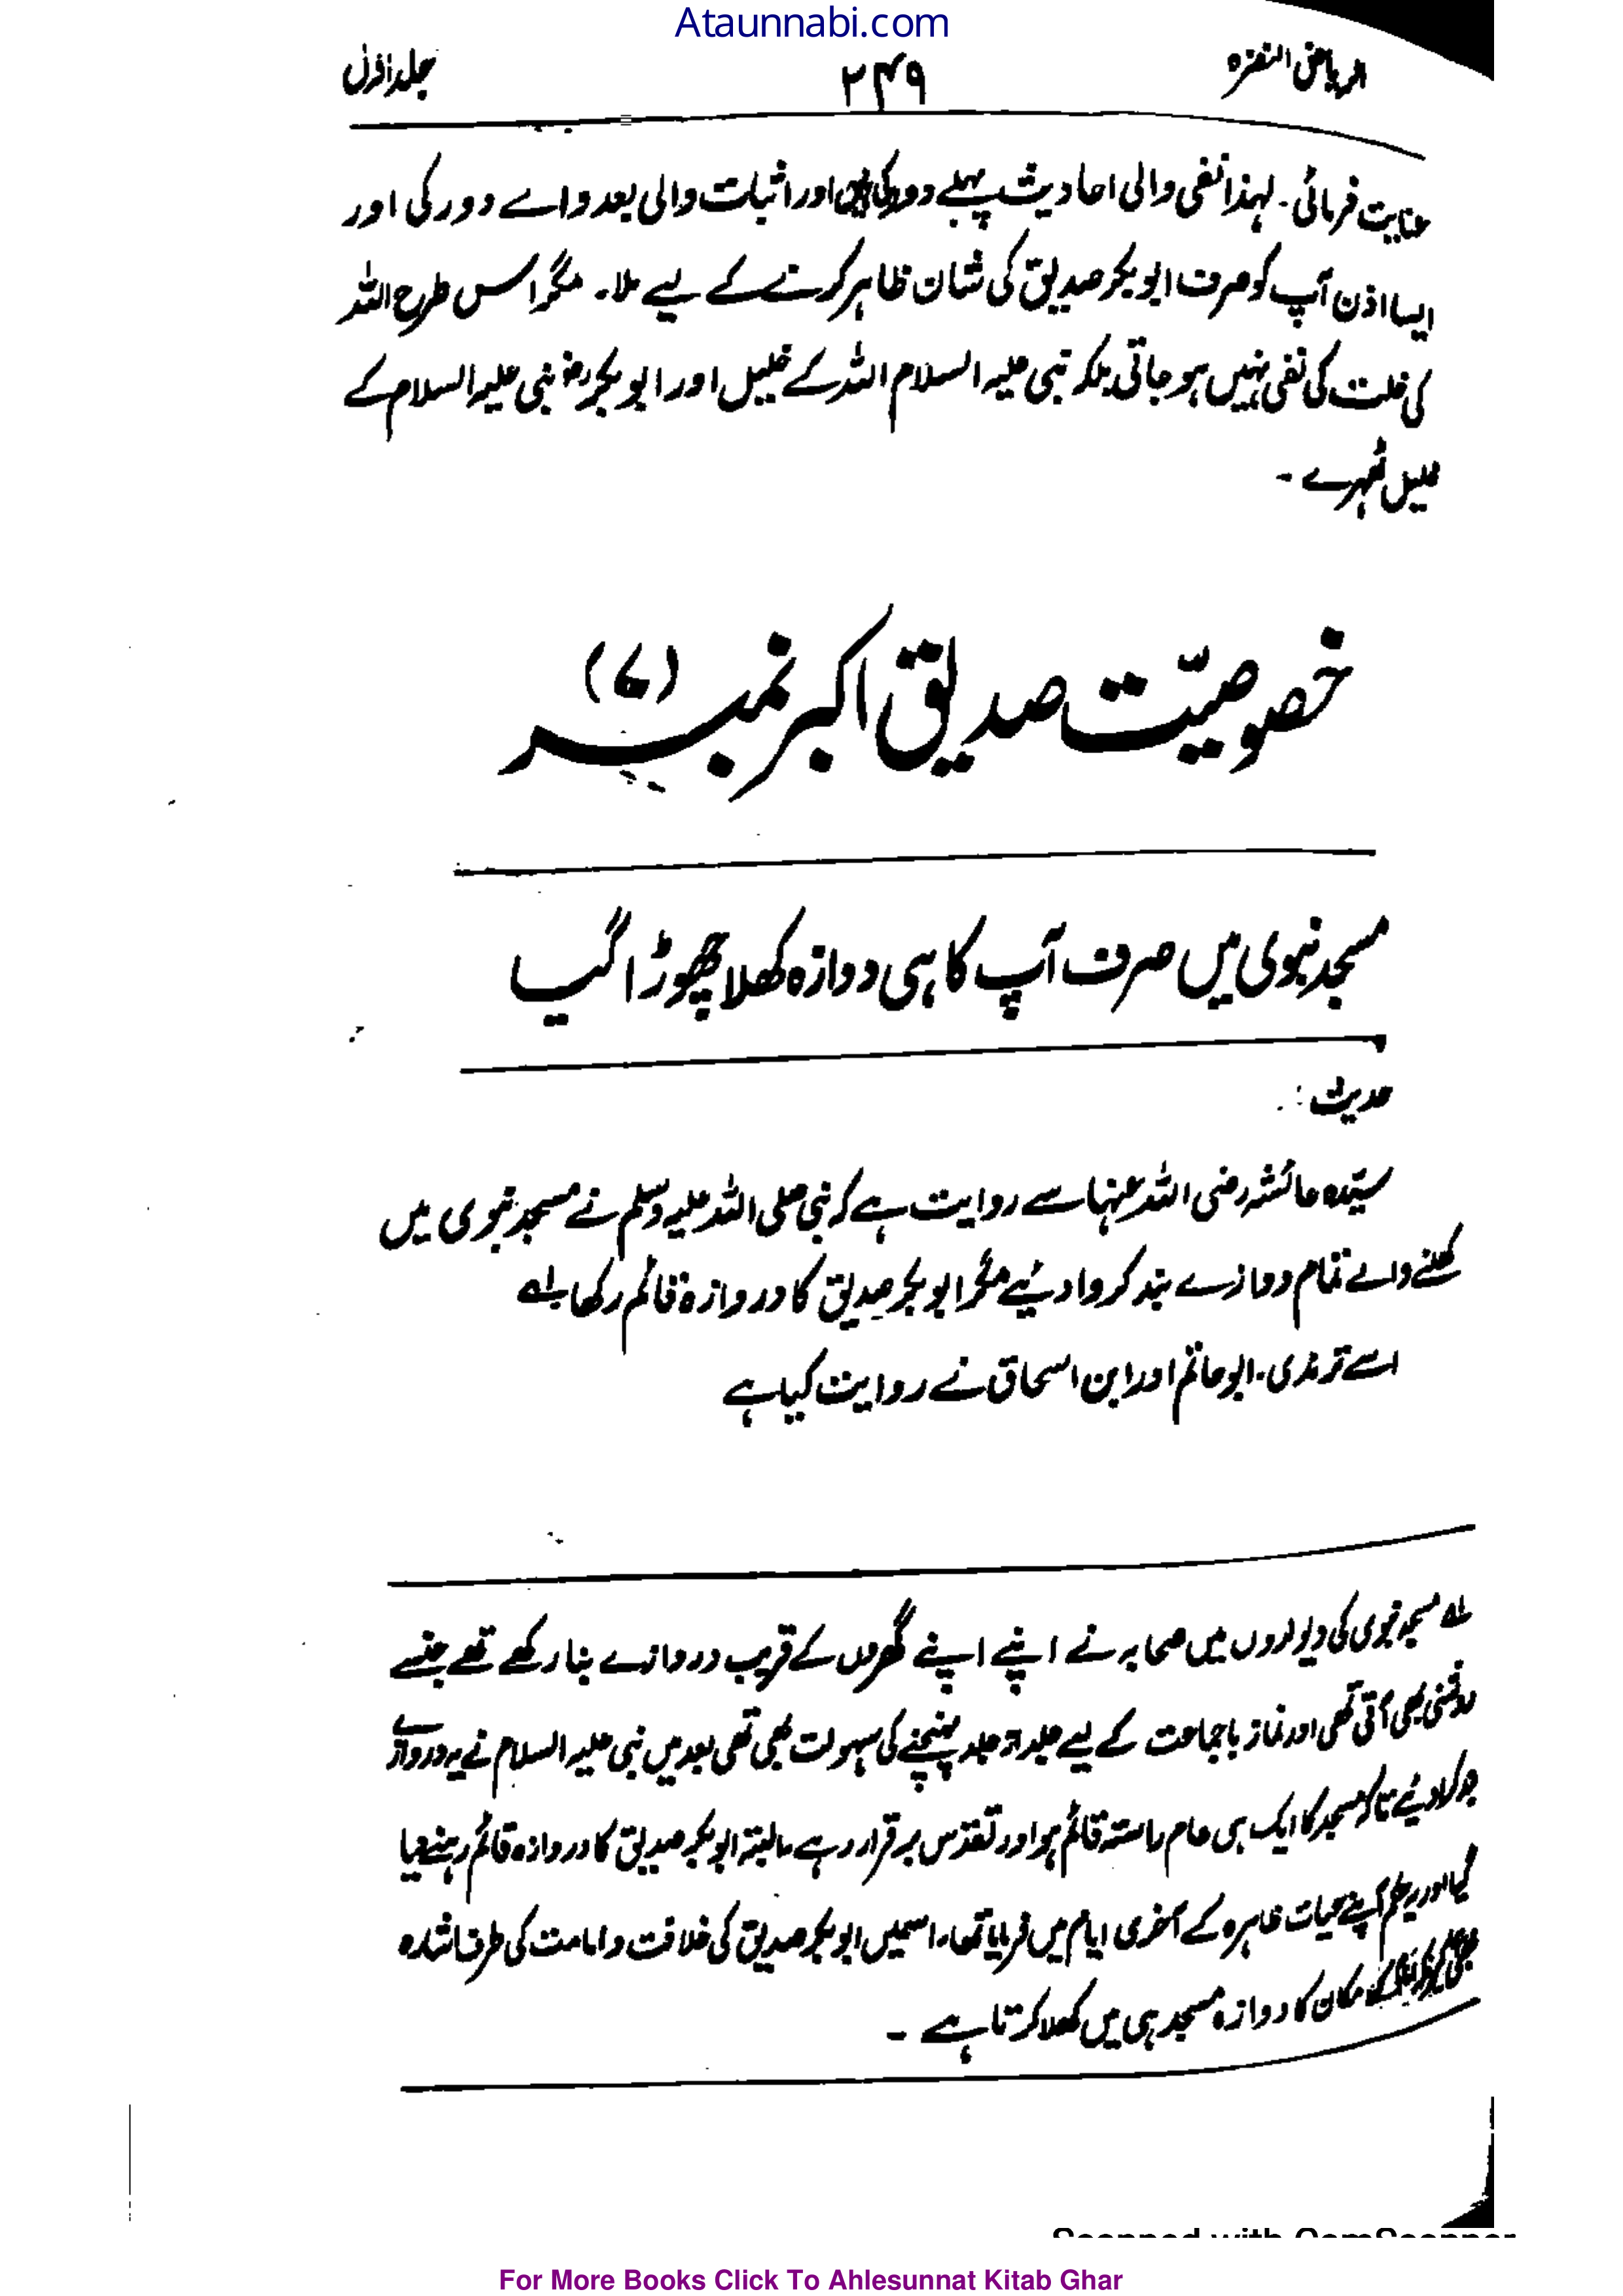 Ataunnabi.com
الریاض النضرہ ۲۴۹ جلد اول
عنایت فرمائی۔ لہذا نفی والی احادیث پہلے دور کی ہیں اور اثبات والی بعد والے دور کی اور
ایسا اذن آپ کو صرف ابو بکر صدیق کی شان ظاہر کرنے کے لیے ملا۔ مگر اس طرح اللہ
کی خلت کی نفی نہیں ہو جاتی بلکہ نبی علیہ السلام اللہ کے خلیل اور ابو بکر رضہ نبی علیہ السلام کے
خلیل ٹھہرے۔
خصوصیّت صدیق اکبر نمبر (۷)
مسجد نبوی میں صرف آپ کا ہی دوازہ کھلا چھوڑا گیا
حدیث:
سیّدہ عائشہ رضی اللہ عنہا سے روایت ہے کہ نبی صلی اللہ علیہ وسلم نے مسجد نبوی میں
کھلنے والے تمام دوازے بند کروا دیئے مگر ابو بکر صدیق کا دروازہ قائم رکھا۔ لہ
اسے ترمذی۔ ابو حاتم اور ابن اسحاق نے روایت کیا ہے
لہ مسجد نبوی کی دیواروں میں صحابہ نے اپنے اپنے گھروں کے قریب دروازے بنا رکھے تھے جنسے
روشنی بھی آتی تھی اور نماز باجماعت کے لیے جلد از جلد پہنچنے کی سہولت بھی تھی بعد میں نبی علیہ السلام نے یہ دروازے
بند کرا دیئے تاکہ مسجد کا ایک ہی عام راستہ قائم ہو اور تقدس برقرار رہے۔ البتہ ابو بکر صدیق کا دروازہ قائم رہنے دیا
گیا اور یہ حکم آپنے حیات ظاہرہ کے آخری ایام میں فرمایا تھا۔ اسمیں ابو بکر صدیق کی خلافت و امامت کی طرف اشارہ
مکان کا دوازہ مسجد ہی میں کھلا کرتا ہے۔
Scanned with CamScanner
For More Books Click To Ahlesunnat Kitab Ghar